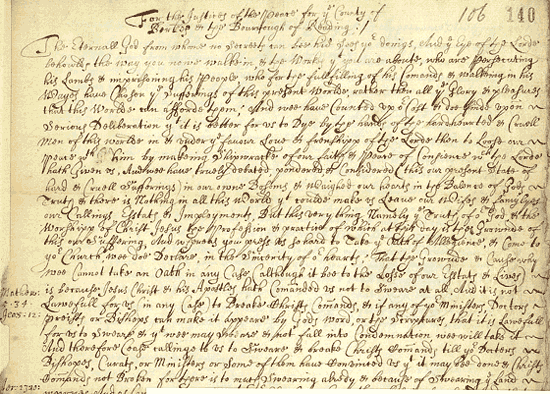 For the Justices of the Peace for yᵉ County of
Berks & the Bourrough of Reading:
106 140
The Eternall God from whome no Secrets can bee hid Sees yoʳ doeings, And yᵉ Eye of the Lorde
beholds the way you now walke in & the Worke yᵗ you are aboute, who are persecuting
his Lambs & imprisoning his People who for the fullfilling of his Comands & walking in his
Wayes have Chosen yᵉ Sufferings of this present Worlde rather then all yᵉ Glory & pleasures
that this Worlde can affoarde them; And wee have Counted yᵉ Cost & doe finde upon
Serious Deliberation yᵗ it is better for us to Dye by the hands of the hardhearted & Cruell
Men of this worlde in & under yᵉ favour Love & freindshipp of the Lorde then to Loose our
Peace wᵗʰ Him by makeing Shipwracke of our faith & Peace of Conscience wᶜʰ the Lorde
hath Given us, And wee have truely debated pondered & Considered (this our present State of
hard & Cruell Sufferings) in our owne Bosoms & Waighed our hearts in the Balance of Gods
Truth & there is Nothing in all this World yᵗ coulde make us Leave our Wifes & Famylyes
our Callings Estats & Imployments, But this very thing Namely yᵉ Truth of God & the
Worshipp of Christ Jesus the Profession & practice of which at this day is the Grounde of
this our Suffering, And whereas you press us so hard to Take yᵉ Oath of Allegiance, & Come to
yoʳ Church, wee doe Declare, in the Sincerity of oʳ hearts. That the Grounde & Cause why
wee Cannot take an Oath in any Case (allthough it bee to the Losse of our Estats & Lives)
is because Jesus Christ & his Apostles hath Comanded us not to Sweare at all. And it is not
Lawefull for us in any Case to Breake Christs Comands, & if any of yoʳ Ministers Doctors
Preists, or Bishops can make it appeare by Gods word or the Scriptures, that it is Lawefull
for us to Sweare & yᵗ wee may Sweare & not fall into Condemnation wee will take it
And therefore Cease calling to us to Sweare & breake Christs Comands till yoʳ Doctors
Bishopes, Curats, or Ministers or Some of them have Convinced us yᵗ it may be done & Christs
Comands not Broken for there is to much Swearing already & because of Swearing yᵉ Land
Mathew:
5: 34.
Jeames: 5: 12: